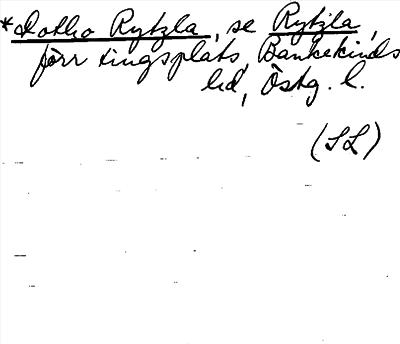 *Dotho Rytzla, se Rytzla,
förr tingsplats, Bankekinds
hd, Östg. l.
(SL)